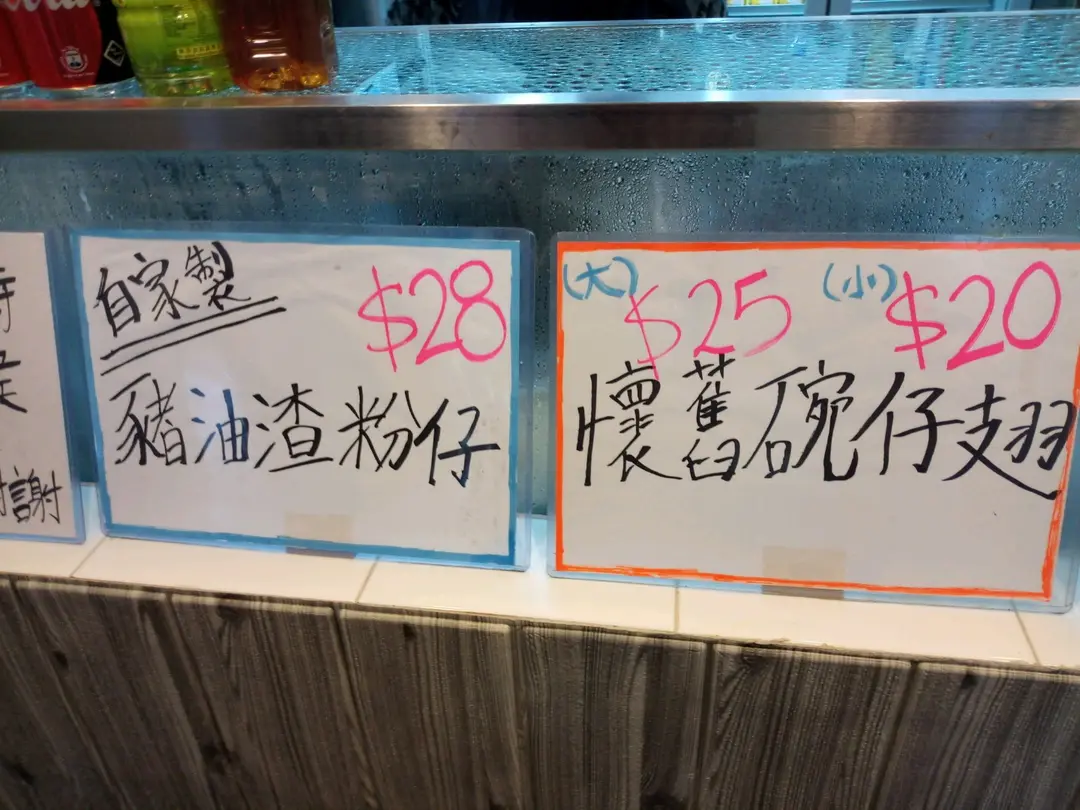 謝
自家製
$28
豬油渣粉仔
(大) $25 (小) $20
懷舊碗仔翅